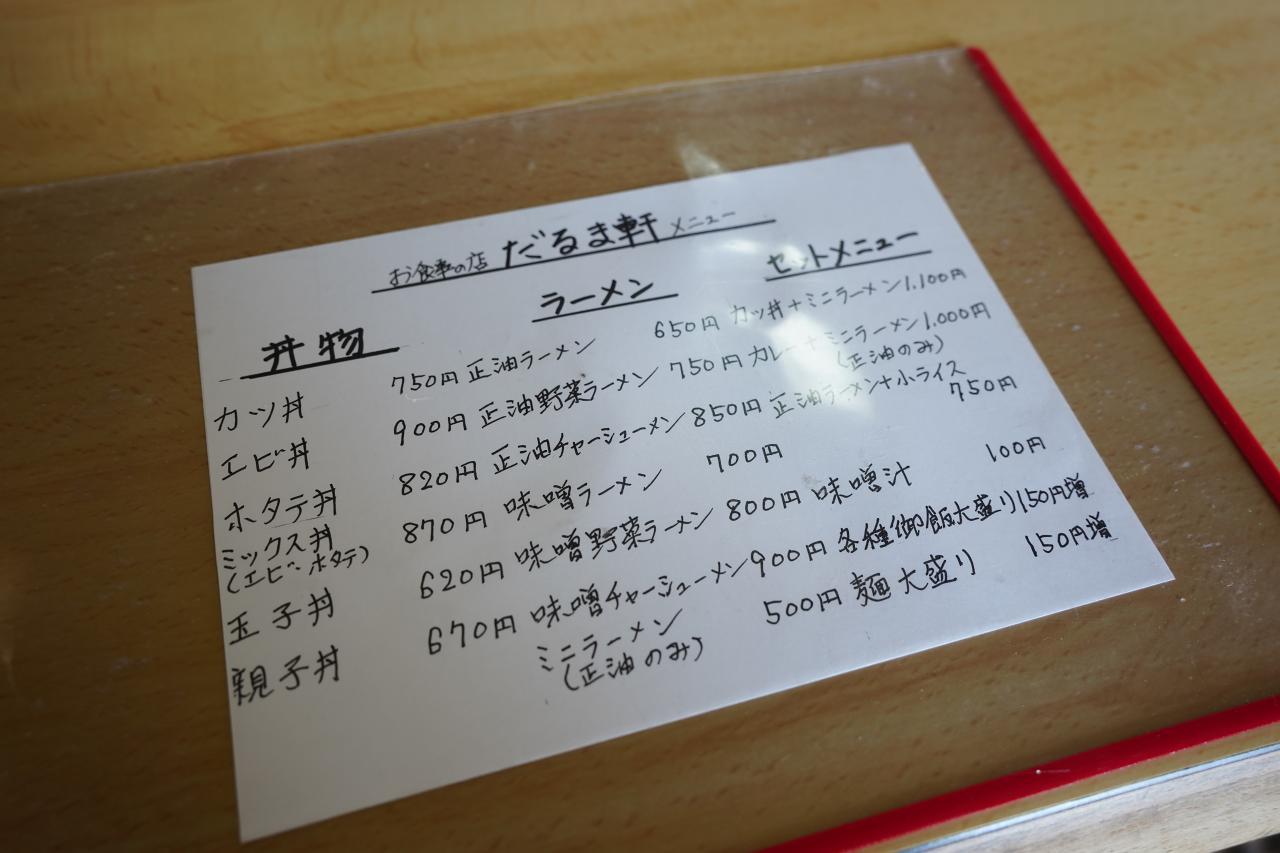 お食事の店 だるま軒 メニュー
丼物
カツ丼 750円
エビ丼 900円
ホタテ丼 820円
ミックス丼 870円
(エビ・ホタテ)
玉子丼 620円
親子丼 670円
ラーメン
正油ラーメン 650円
正油野菜ラーメン 750円
正油チャーシューメン 850円
味噌ラーメン 700円
味噌野菜ラーメン 800円
味噌チャーシューメン 900円
ミニラーメン 500円
(正油のみ)
セットメニュー
カツ丼+ミニラーメン 1,100円
カレー+ミニラーメン 1,000円
(正油のみ)
正油ラーメン+小ライス
750円
味噌汁 100円
各種御飯大盛り 150円増
麺大盛り 150円増